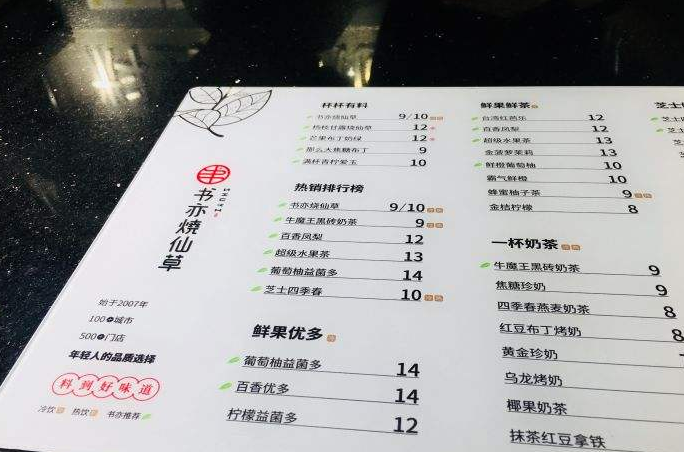 书亦烧仙草
SHUYI
始于2007年
100+城市
500+门店
年轻人的品质选择
料到好味道
冷饮 热饮 书亦推荐
杯杯有料
书亦烧仙草 9/10
杨枝甘露烧仙草 12
芒果布丁奶绿 12
那么大焦糖布丁 9
满杯青柠爱玉 10
热销排行榜
书亦烧仙草 9/10
牛魔王黑砖奶茶 9
百香凤梨 12
超级水果茶 13
葡萄柚益菌多 14
芝士四季春 10
鲜果优多
葡萄柚益菌多 14
百香优多 14
柠檬益菌多 12
鲜果鲜茶
台湾红芭乐 12
百香凤梨 12
超级水果茶 13
金菠萝茉莉 13
鲜橙葡萄柚 10
霸气鲜橙 10
蜂蜜柚子茶 9
金桔柠檬 8
一杯奶茶
牛魔王黑砖奶茶 9
焦糖珍奶 9
四季春燕麦奶茶 8
红豆布丁烤奶 8
黄金珍奶
乌龙烤奶
椰果奶茶
抹茶红豆拿铁
芝士
芝士
芝士